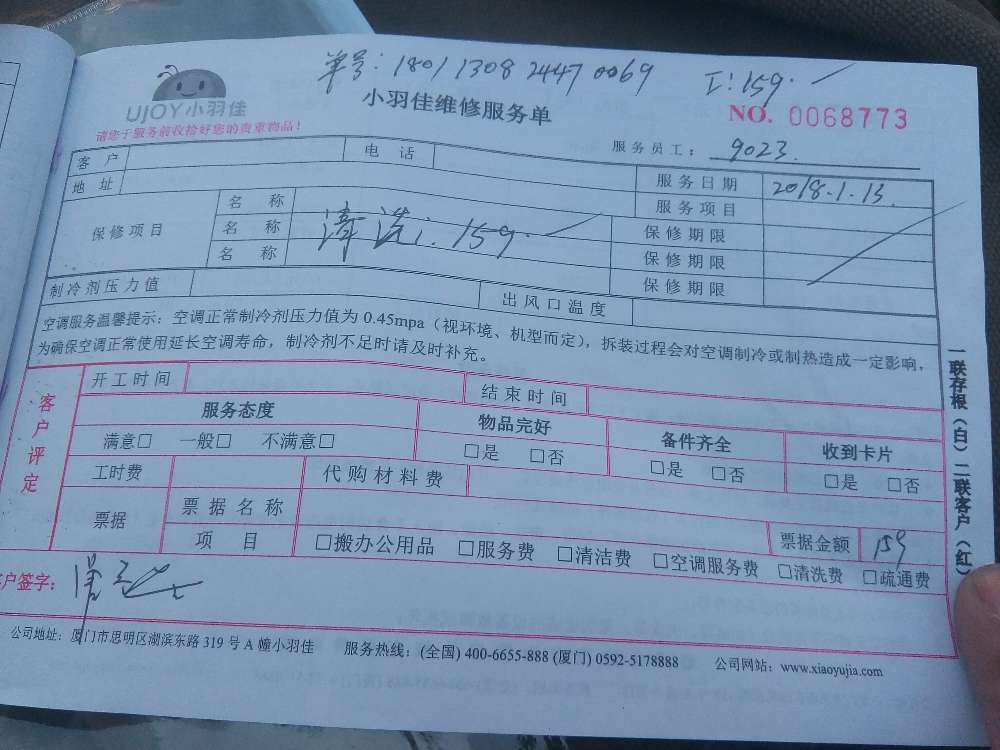 单号：180113082447 0069 工：159.
UJOY小羽佳
小羽佳维修服务单
NO. 0068773
请您于服务前收拾好您的贵重物品！
服务员工： 9023.
客户 电话 服务日期 2018.1.13.
地址 服务项目
保修项目 名称 保修期限
名称 清洗：159. 保修期限
名称 保修期限
制冷剂压力值 出风口温度
空调服务温馨提示：空调正常制冷剂压力值为 0.45mpa（视环境、机型而定），拆装过程会对空调制冷或制热造成一定影响，
为确保空调正常使用延长空调寿命，制冷剂不足时请及时补充。
客户评定
开工时间 结束时间
服务态度 物品完好 备件齐全 收到卡片
满意□ 一般□ 不满意□ □是 □否 □是 □否 □是 □否
工时费 代购材料费
票据 票据名称 票据金额 159
项目 □搬办公用品 □服务费 □清洁费 □空调服务费 □清洗费 □疏通费
户签字：
公司地址：厦门市思明区湖滨东路 319 号 A 幢小羽佳 服务热线：(全国) 400-6655-888 (厦门) 0592-5178888 公司网站：www.xiaoyujia.com
一联存根（白）二联客户（红）